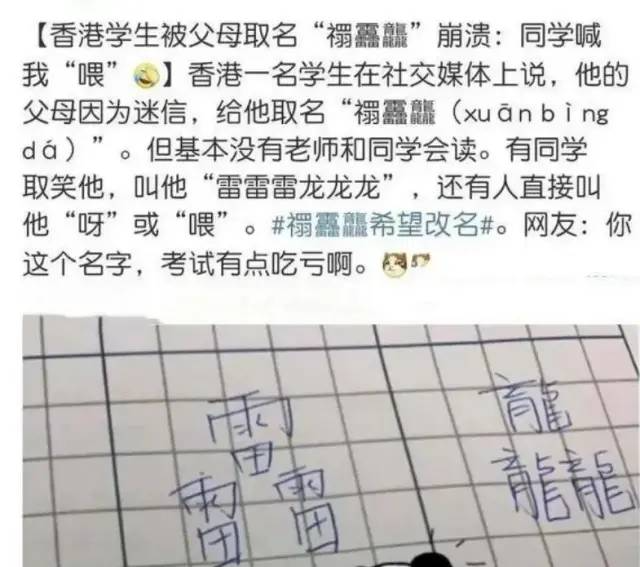 【香港学生被父母取名“禤靐龘”崩溃：同学喊
我“喂”🤣】香港一名学生在社交媒体上说，他的
父母因为迷信，给他取名“禤靐龘（xuānbìng
dá）”。但基本没有老师和同学会读。有同学
取笑他，叫他“雷雷雷龙龙龙”，还有人直接叫
他“呀”或“喂”。#禤靐龘希望改名#。网友：你
这个名字，考试有点吃亏啊。
雷 龍
雷雷 龍龍